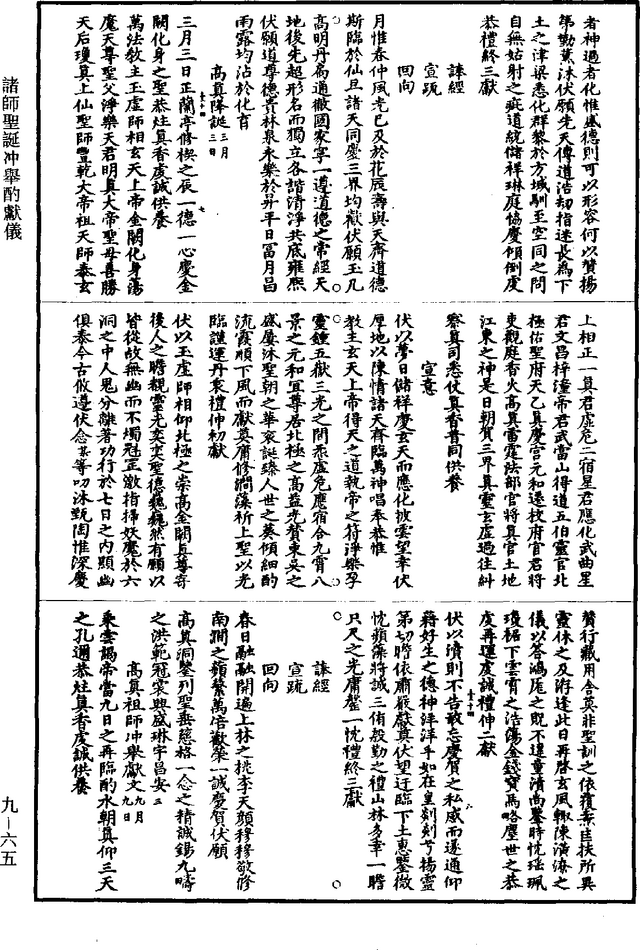 者神過者化惟盛德則可以形容何以贊揚
第勤薰沐伏願先天傳道浩劫指迷長為下
土之津梁悉化群黎於方域馴至空同之問
自無姑射之疵道統儲祥琳庭協慶傾倒虔
恭禮終三獻
誦經
宣䟽
回向
月惟春仲風光已及於花辰壽與天齊道德
斯臨於仙旦諸天同慶三界均歡伏願玉几
高明丹扄通徹國家寧一遵道德之常經天
地後先超形名而獨立各諧清淨共底雍熙
伏願道尊德貴林泉永樂於昇平日冨月昌
雨露均沾於化育
高真降誕三月三日
三月三日正蘭亭修禊之辰一德一心慶金
闕化身之聖恭炷真香虔誠供養
萬法教主玉虛師相玄天上帝金闕化身蕩
魔天尊聖父淨樂天君明真大帝聖母善勝
天后瓊真上仙聖師豐乾大帝祖天師泰玄
上相正一真君虛危二宿星君應化武曲星
君文昌梓潼帝君武當山得道五伯靈官北
極佑聖府天乙真慶宮元和遷校府官君將
吏觀庭香火高真雷霆法部官將真官土地
江東之神是日朝賀三界真靈玄虛過往糾
察真司悉仗真香普同供養
宣意
伏以夢日儲祥慶玄天而應化披雲望幸伏
厚地以陳情諸天齊臨萬神唱奉恭惟
教主玄天上帝得天之道執帝之符淨樂孕
靈鍾五嶽三光之間炁虛危應宿合九霄八
景之元和冝尊居北極之高益光贊東吳之
盛屢沐聖朝之華衮誕臻人世之葵傾細酌
流霞順下風而獻奠庸修澗藻祈上聖以光
臨謹運丹衷禮伸初獻
伏以玉虛師相仰北極之崇高金闕真尊寄
後人之瞻觀靈光奕奕聖德巍巍然有願以
皆從故無幽而不燭冠罡激指掃妖魔於六
洞之中人鬼分離著功行於七日之內顯幽
俱泰今古攸遵伏念某等叨沐甄陶惟深慶
贊行藏用舍莫非聖訓之依覆燾匡扶所異
靈休之及洊逢此日再啓玄風輙陳潢潦之
儀以答鴻厖之貺不遑童清尚鑒時忱瑤珮
瓊裾下雲霄之浩蕩金錢寶馬略塵世之恭
虔再運虔誠禮伸二獻
伏以瀆則不告敢忘慶賀之私感而遂通仰
藉好生之德神洋洋乎如在皇剡剡兮揚靈
第切瞻依肅嚴獻奠伏望迂臨下土惠鑒微
忱蘋藻將誠三侑殷勤之禮山林多幸一瞻
只尺之光庸罄一忱禮終三獻
誦經
宣䟽
回向
春日融融開遍上林之桃李天顏穆穆敬修
南澗之蘋蘩萬倍歡榮一誠慶賀伏願
高真洞鑒列聖垂慈格一念之精誠錫九疇
之洪範冠裳興盛琳宇昌安
高真祖師冲舉獻文九月九日
乘雲謁帝當九日之再臨酌水朝真仰三天
之孔邇恭炷真香虔誠供養
諸師聖誕冲舉酌獻儀
九—六五